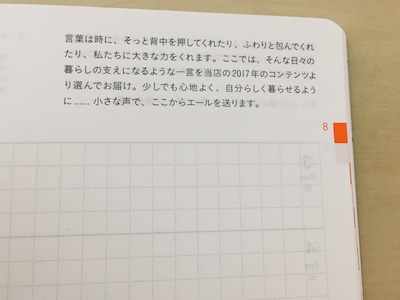 言葉は時に、そっと背中を押してくれたり、ふわりと包んでくれ
たり、私たちに大きな力をくれます。ここでは、そんな日々の
暮らしの支えになるような一言を当店の2017年のコンテンツよ
り選んでお届け。少しでも心地よく、自分らしく暮らせるよう
に……小さな声で、ここからエールを送ります。
8